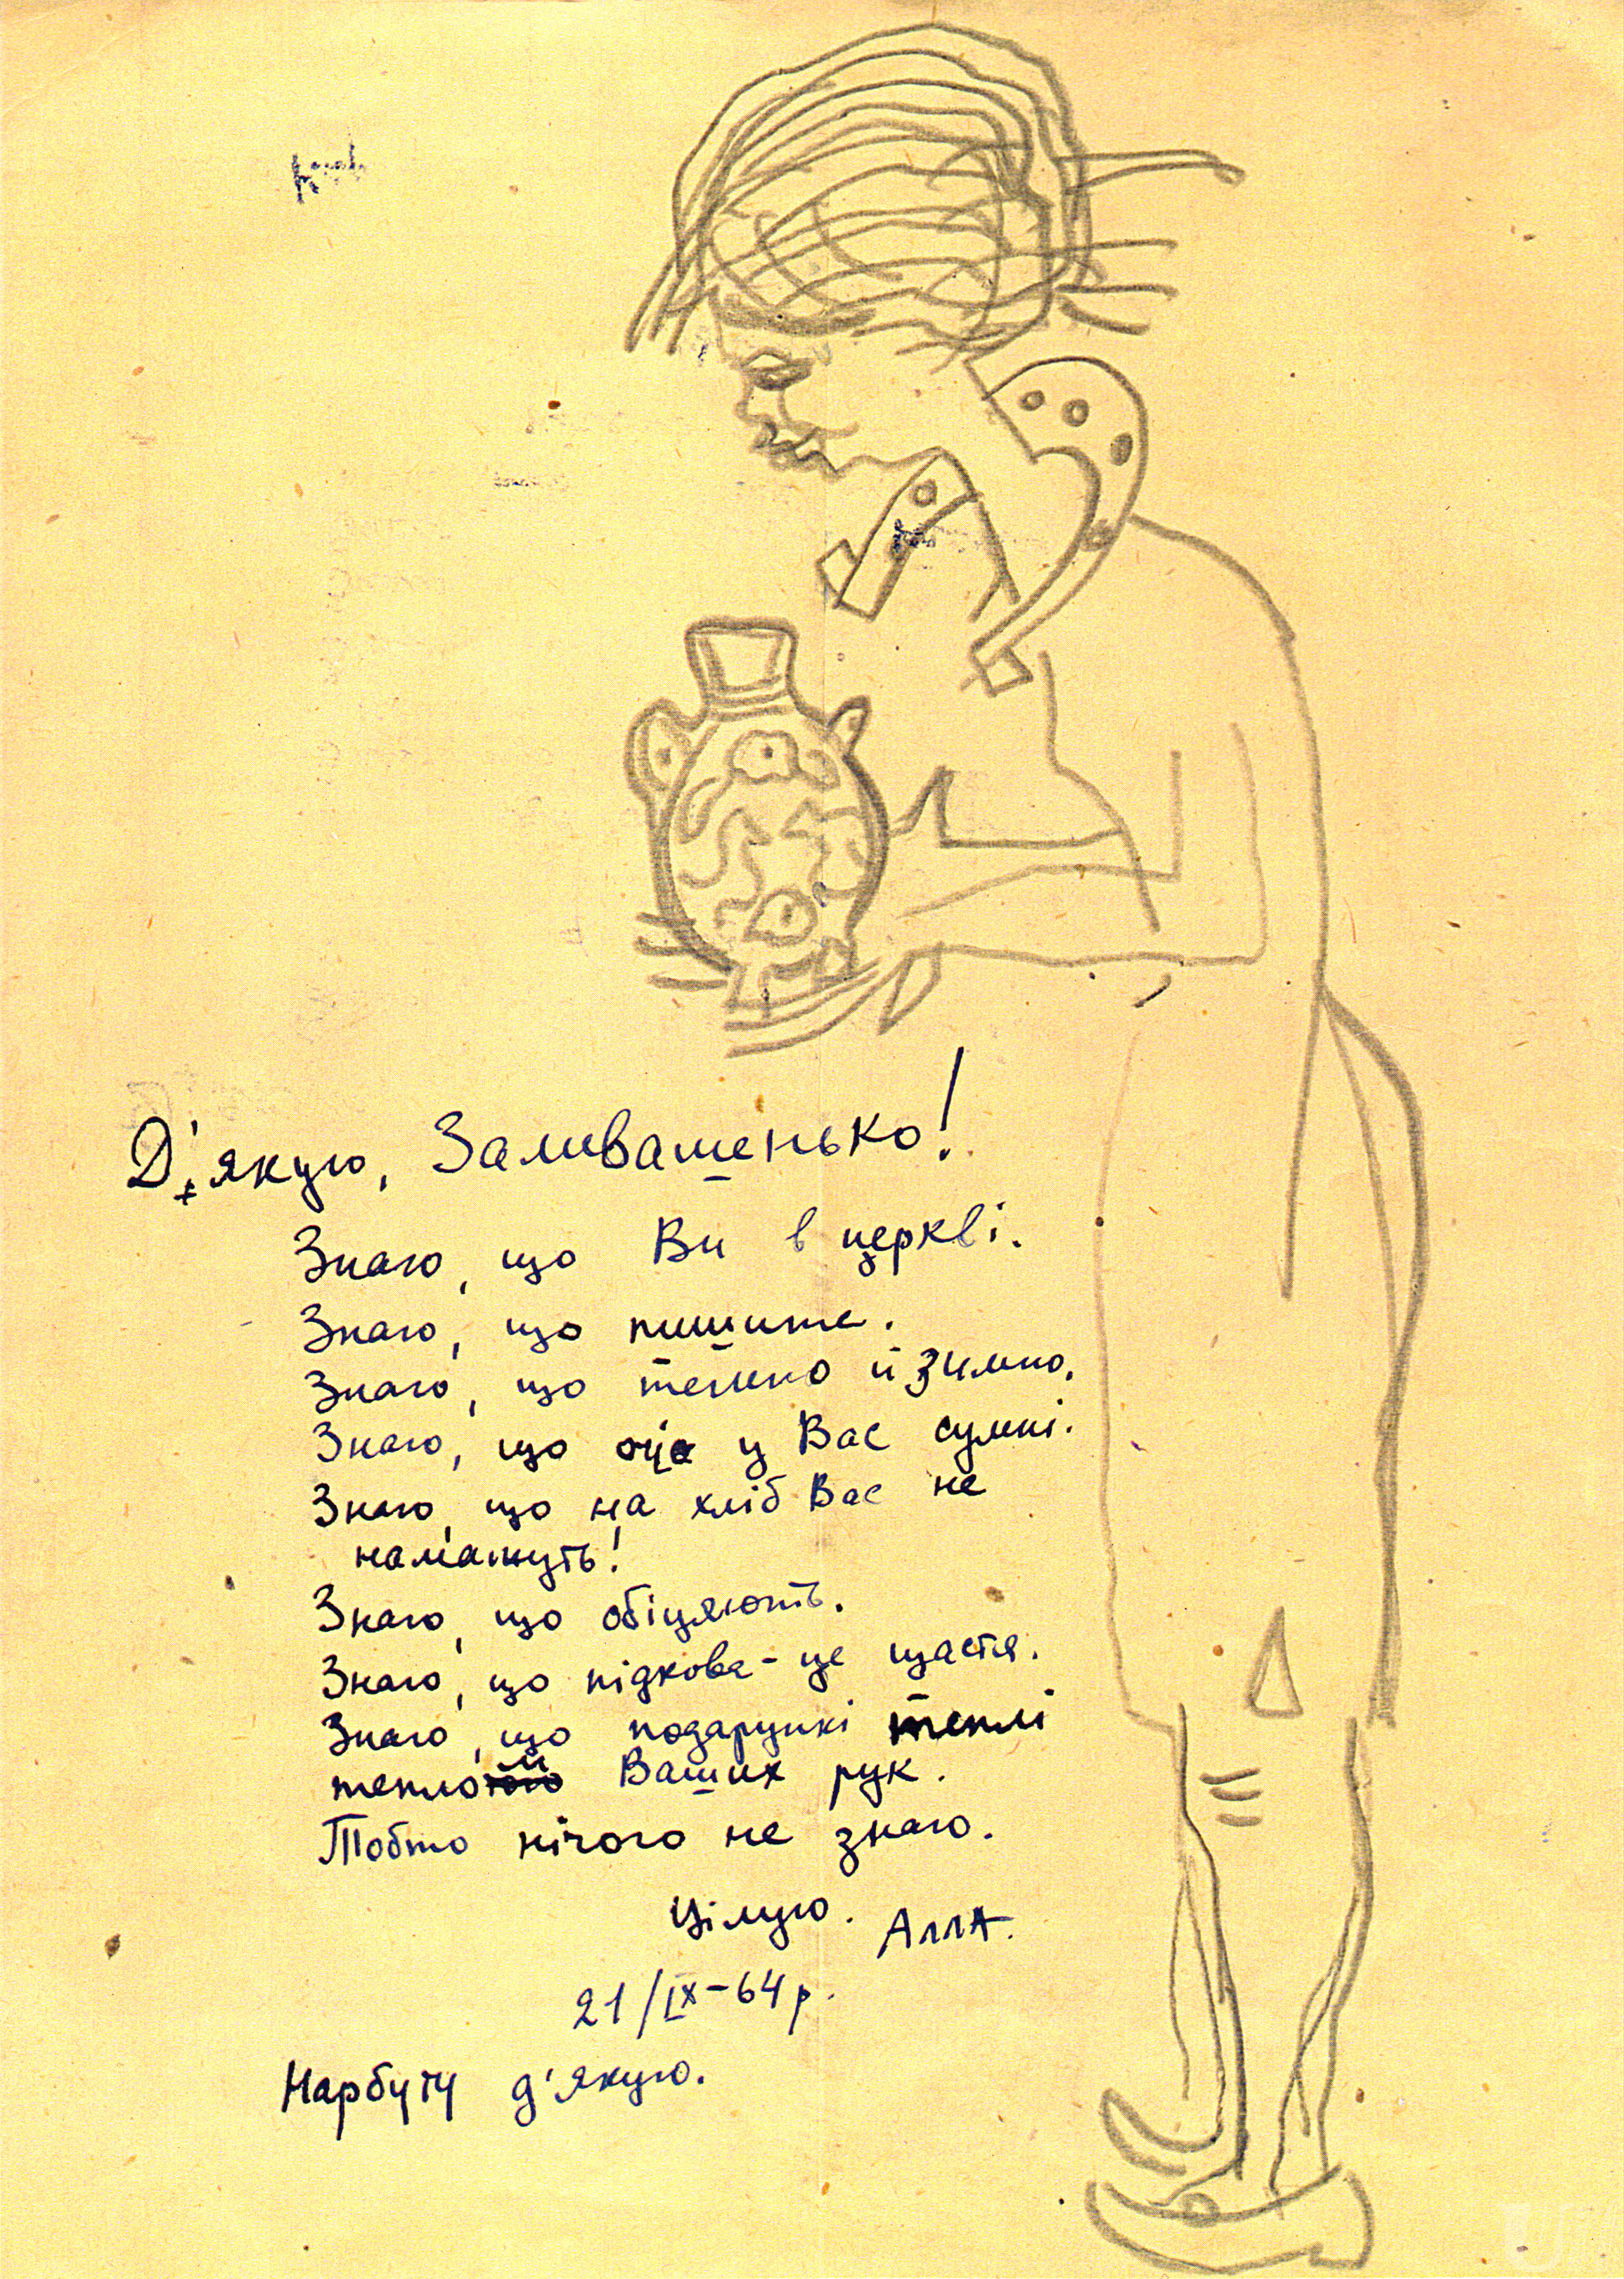 Д'якую, Заливашенько!
Знаю, що Ви в церкві.
Знаю, що пишите.
Знаю, що темно й зимно.
Знаю, що очі у Вас сумні.
Знаю, що на хліб Вас не
намажуть!
Знаю, що обіцяють.
Знаю, що підкова - це щастя.
Знаю, що подарункі теплі
теплой Ваших рук.
Тобто нічого не знаю.
Цілую. Алла.
21/IX-64 р.
Нарбуту д'якую.